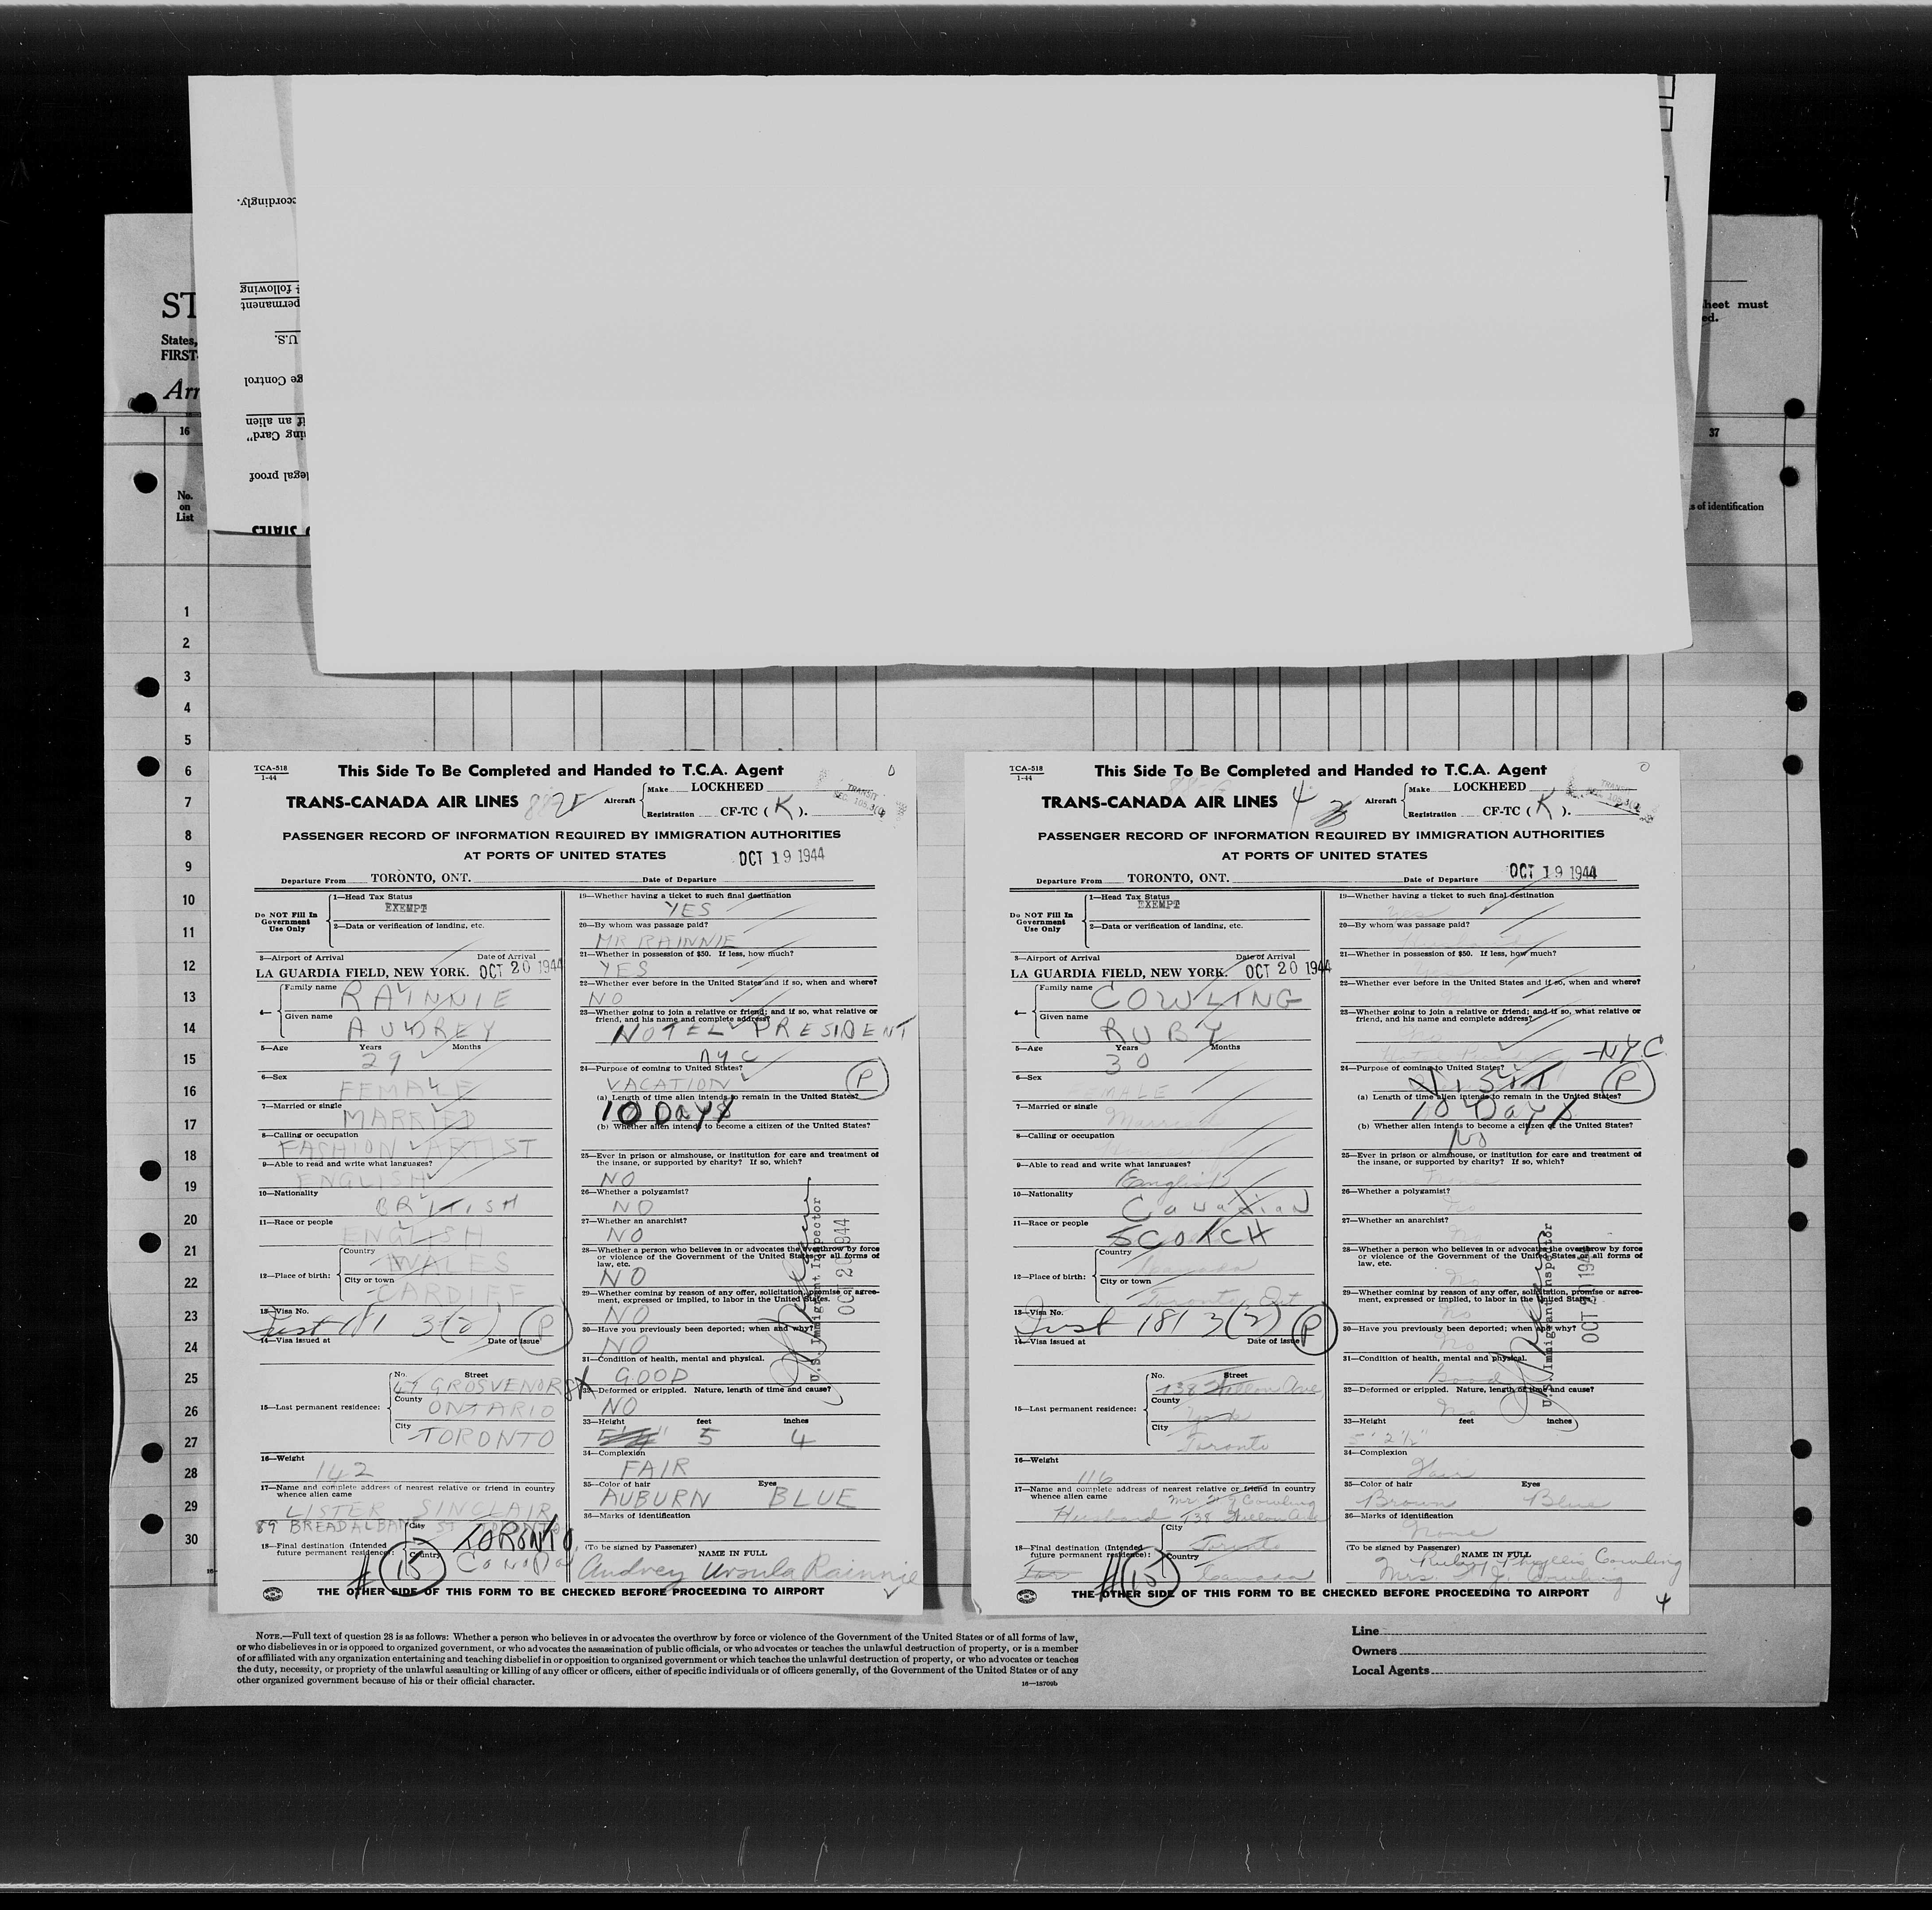 ccordingly.
following
permanent
U.S.
ge Control
if an alien
ing Card"
legal proof
D STATES
ST
States,
FIRST-
Arr
heet must
ed.
16
37
No.
on
List
s of identification
1
2
3
4
5
6
7
8
9
10
11
12
13
14
15
16
17
18
19
20
21
22
23
24
25
26
27
28
29
30
TCA-518
1-44
This Side To Be Completed and Handed to T.C.A. Agent
TRANS-CANADA AIR LINES
Aircraft
Make LOCKHEED
Registration CF-TC ( K ).
TRANSIT
PASSENGER RECORD OF INFORMATION REQUIRED BY IMMIGRATION AUTHORITIES
AT PORTS OF UNITED STATES
OCT 19 1944
Departure From TORONTO, ONT. Date of Departure
Do NOT Fill In Government Use Only
1—Head Tax Status
EXEMPT
2—Data or verification of landing, etc.
3—Airport of Arrival Date of Arrival
LA GUARDIA FIELD, NEW YORK. OCT 20 1944
4— Family name RAINNIE
Given name AUDREY
5—Age Years Months
29
6—Sex
FEMALE
7—Married or single
MARRIED
8—Calling or occupation
FASHION ARTIST
9—Able to read and write what languages?
ENGLISH
10—Nationality
BRITISH
11—Race or people
ENGLISH
12—Place of birth: Country WALES
City or town CARDIFF
13—Visa No.
181 3(2) P
14—Visa issued at Date of issue
15—Last permanent residence:
No. Street
GROSVENOR ST
County ONTARIO
City TORONTO
16—Weight
142
17—Name and complete address of nearest relative or friend in country whence alien came
LISTER SINCLAIR
89 BREADALBANE ST TORONTO
18—Final destination (Intended future permanent residence):
City TORONTO
Country CANADA
# 15
19—Whether having a ticket to such final destination
YES
20—By whom was passage paid?
MR RAINNIE
21—Whether in possession of $50. If less, how much?
YES
22—Whether ever before in the United States and if so, when and where?
NO
23—Whether going to join a relative or friend; and if so, what relative or friend, and his name and complete address?
HOTEL PRESIDENT
NYC
24—Purpose of coming to United States?
VACATION P
(a) Length of time alien intends to remain in the United States?
10 Days
(b) Whether alien intends to become a citizen of the United States?
25—Ever in prison or almshouse, or institution for care and treatment of the insane, or supported by charity? If so, which?
NO
26—Whether a polygamist?
NO
27—Whether an anarchist?
NO
28—Whether a person who believes in or advocates the overthrow by force or violence of the Government of the United States or all forms of law, etc.
NO
29—Whether coming by reason of any offer, solicitation, promise or agreement, expressed or implied, to labor in the United States.
NO
30—Have you previously been deported; when and why?
NO
31—Condition of health, mental and physical.
GOOD
32—Deformed or crippled. Nature, length of time and cause?
NO
33—Height feet inches
5 4
34—Complexion
FAIR
35—Color of hair Eyes
AUBURN BLUE
36—Marks of identification
(To be signed by Passenger) NAME IN FULL
Audrey Ursula Rainnie
U.S. Immigrant Inspector
OCT 20 1944
THE OTHER SIDE OF THIS FORM TO BE CHECKED BEFORE PROCEEDING TO AIRPORT
TCA-518
1-44
This Side To Be Completed and Handed to T.C.A. Agent
TRANS-CANADA AIR LINES 4
Aircraft
Make LOCKHEED
Registration CF-TC ( K ).
TRANSIT
PASSENGER RECORD OF INFORMATION REQUIRED BY IMMIGRATION AUTHORITIES
AT PORTS OF UNITED STATES
OCT 19 1944
Departure From TORONTO, ONT. Date of Departure
Do NOT Fill In Government Use Only
1—Head Tax Status
EXEMPT
2—Data or verification of landing, etc.
3—Airport of Arrival Date of Arrival
LA GUARDIA FIELD, NEW YORK. OCT 20 1944
4— Family name COWLING
Given name RUBY
5—Age Years Months
30
6—Sex
FEMALE
7—Married or single
Married
8—Calling or occupation
9—Able to read and write what languages?
English
10—Nationality
Canadian
11—Race or people
SCOTCH
12—Place of birth: Country Canada
City or town Toronto, Ont
13—Visa No.
181 3(2) P
14—Visa issued at Date of issue
15—Last permanent residence:
No. Street
138 Willow Ave
County York
City Toronto
16—Weight
116
17—Name and complete address of nearest relative or friend in country whence alien came
Husband 138 Willow Ave
18—Final destination (Intended future permanent residence):
City Toronto
Country Canada
# 15
19—Whether having a ticket to such final destination
Yes
20—By whom was passage paid?
Husband
21—Whether in possession of $50. If less, how much?
22—Whether ever before in the United States and if so, when and where?
23—Whether going to join a relative or friend; and if so, what relative or friend, and his name and complete address?
No
-NYC
24—Purpose of coming to United States?
VISIT P
(a) Length of time alien intends to remain in the United States?
10 Days
(b) Whether alien intends to become a citizen of the United States?
No
25—Ever in prison or almshouse, or institution for care and treatment of the insane, or supported by charity? If so, which?
None
26—Whether a polygamist?
No
27—Whether an anarchist?
No
28—Whether a person who believes in or advocates the overthrow by force or violence of the Government of the United States or all forms of law, etc.
No
29—Whether coming by reason of any offer, solicitation, promise or agreement, expressed or implied, to labor in the United States.
No
30—Have you previously been deported; when and why?
No
31—Condition of health, mental and physical.
Good
32—Deformed or crippled. Nature, length of time and cause?
No
33—Height feet inches
5' 2½"
34—Complexion
Fair
35—Color of hair Eyes
Brown Blue
36—Marks of identification
None
(To be signed by Passenger) NAME IN FULL
Ruby Phyllis Cowling
Mrs. Cowling
U.S. Immigrant Inspector
OCT 20 194
THE OTHER SIDE OF THIS FORM TO BE CHECKED BEFORE PROCEEDING TO AIRPORT
4
NOTE.—Full text of question 28 is as follows: Whether a person who believes in or advocates the overthrow by force or violence of the Government of the United States or of all forms of law,
or who disbelieves in or is opposed to organized government, or who advocates the assassination of public officials, or who advocates or teaches the unlawful destruction of property, or is a member
of or affiliated with any organization entertaining and teaching disbelief in or opposition to organized government or which teaches the unlawful destruction of property, or who advocates or teaches
the duty, necessity, or propriety of the unlawful assaulting or killing of any officer or officers, either of specific individuals or of officers generally, of the Government of the United States or of any
other organized government because of his or their official character.
16—18709b
Line
Owners
Local Agents